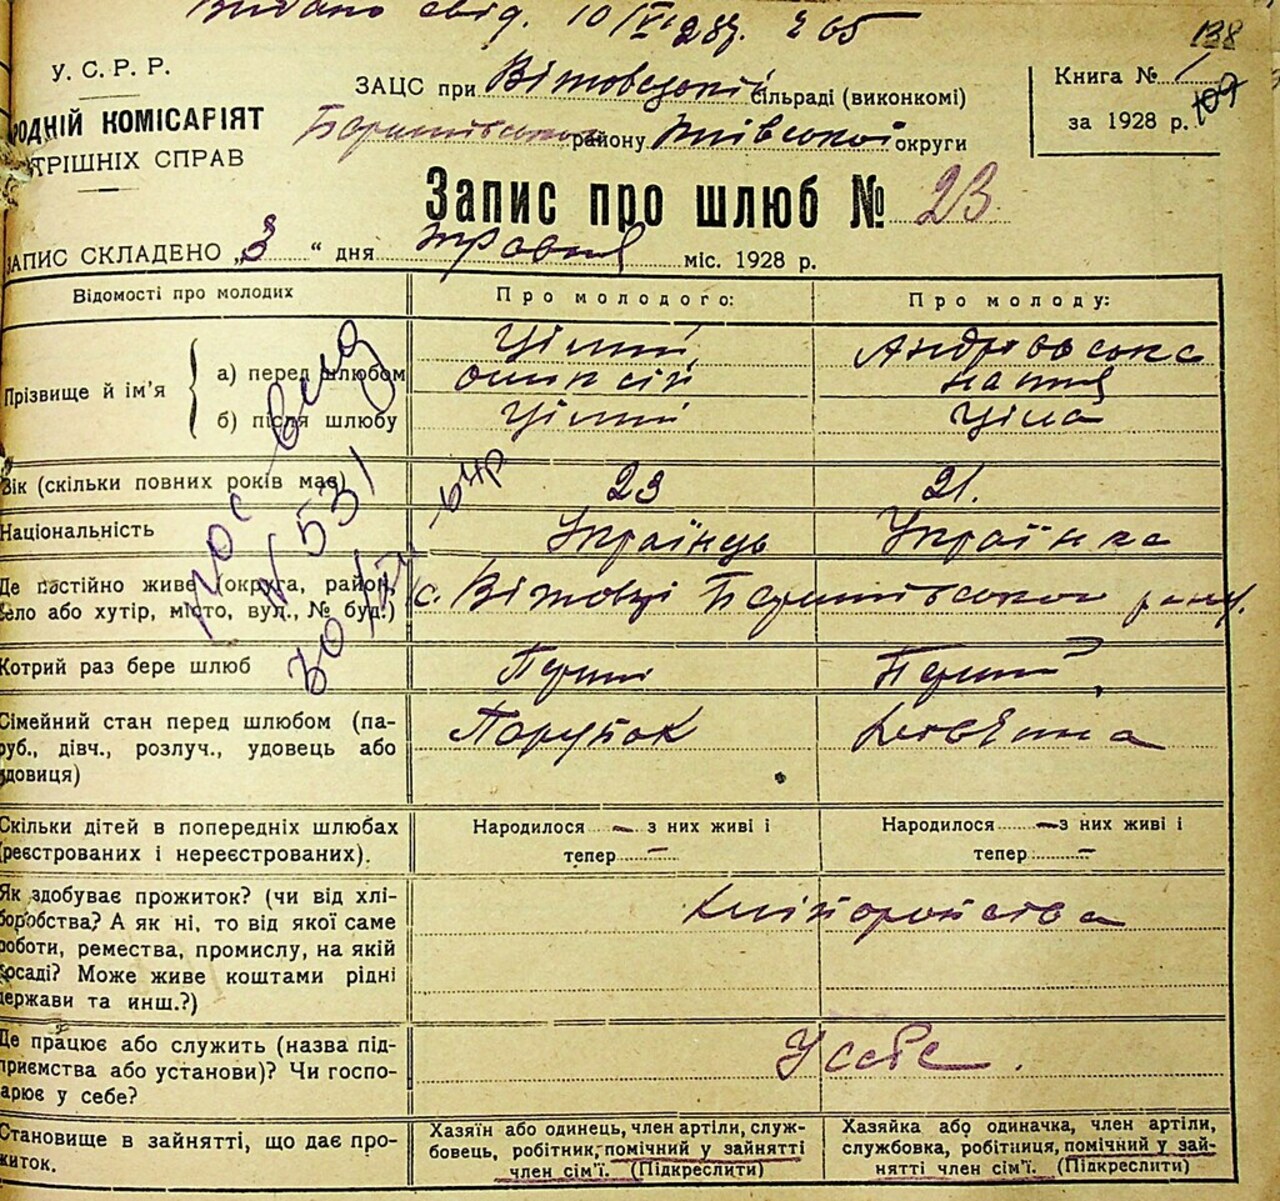 Видано свід. 10/VI 28р. № 65
138
У. С. Р. Р.
РОДНІЙ КОМІСАРІЯТ
ТРІШНІХ СПРАВ
ЗАЦС при Вітовецькій сільраді (виконкомі)
Баришівського району Київської округи
Книга № 1
за 1928 р. 109
Запис про шлюб № 23
ЗАПИС СКЛАДЕНО „3“ дня травня міс. 1928 р.
Відомості про молодих
Про молодого:
Про молоду:
Прізвище й ім'я
а) перед шлюбом
Цілий
Андрієвська
б) після шлюбу
Цілий
Ціла
Вік (скільки повних років має)
23
21.
Національність
Українець
Українка
Де постійно живе (округа, район,
село або хутір, місто, вул., № буд.)
с. Вітовці Баришівського району.
№ 531
Котрий раз бере шлюб
Перший
Перший
Сімейний стан перед шлюбом (па-
руб., дівч., розлуч., удовець або
удовиця)
Парубок
Дівчина
Скільки дітей в попередніх шлюбах
(реєстрованих і нереєстрованих).
Народилося – з них живі і
тепер –
Народилося – з них живі і
тепер –
Як здобуває прожиток? (чи від хлі-
боробства? А як ні, то від якої саме
роботи, ремества, промислу, на якій
посаді? Може живе коштами рідні
держави та инш.?)
Хліборобства
Де працює або служить (назва під-
приємства або установи)? Чи госпо-
дарює у себе?
У себе.
Становище в зайнятті, що дає про-
житок.
Хазяїн або одинець, член артіли, служ-
бовець, робітник, помічний у зайнятті
член сім'ї. (Підкреслити)
Хазяйка або одиначка, член артіли,
службовка, робітниця, помічний у зай-
нятті член сім'ї. (Підкреслити)